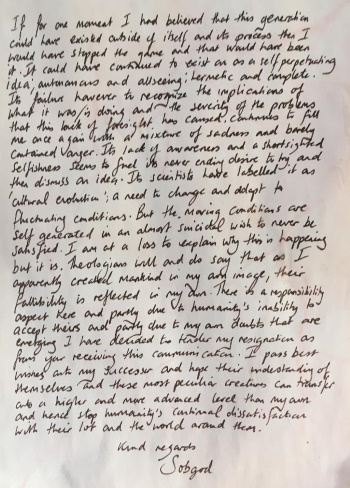 If for one moment I had believed that this generation
could have existed outside of itself and its process then I
would have stopped the game and that would have been
it. It could have continued to exist on as a self perpetuating
idea; autonomous and allseeing; hermetic and complete.
Its failure however to recognize the implications of
what it was/is doing and the severity of the problems
that this lack of foresight has caused, continues to fill
me once again with a mixture of sadness and barely
contained anger. Its lack of awareness and a shortsighted
selfishness seems to fuel its never ending desire to try and
then dismiss an idea. Its scientists have labelled it as
'cultural evolution'; a need to change and adapt to
fluctuating conditions. But the moving conditions are
self generated in an almost suicidal wish to never be
satisfied. I am at a loss to explain why this is happening
but it is. Theologians will and do say that as I
apparently created mankind in my own image, their
fallibility is reflected in my own. There is a responsibility
aspect here and partly due to humanity's inability to
accept theirs and partly due to my own doubts that are
emerging I have decided to tender my resignation as
from your receiving this communication. I pass best
wishes onto my successor and hope their understanding of
themselves and these most peculiar creatures can transfer
onto a higher and more advanced level than my own
and hence stop humanity's continual dissatisfaction
with their lot and the world around them.
Kind regards
Sobgod